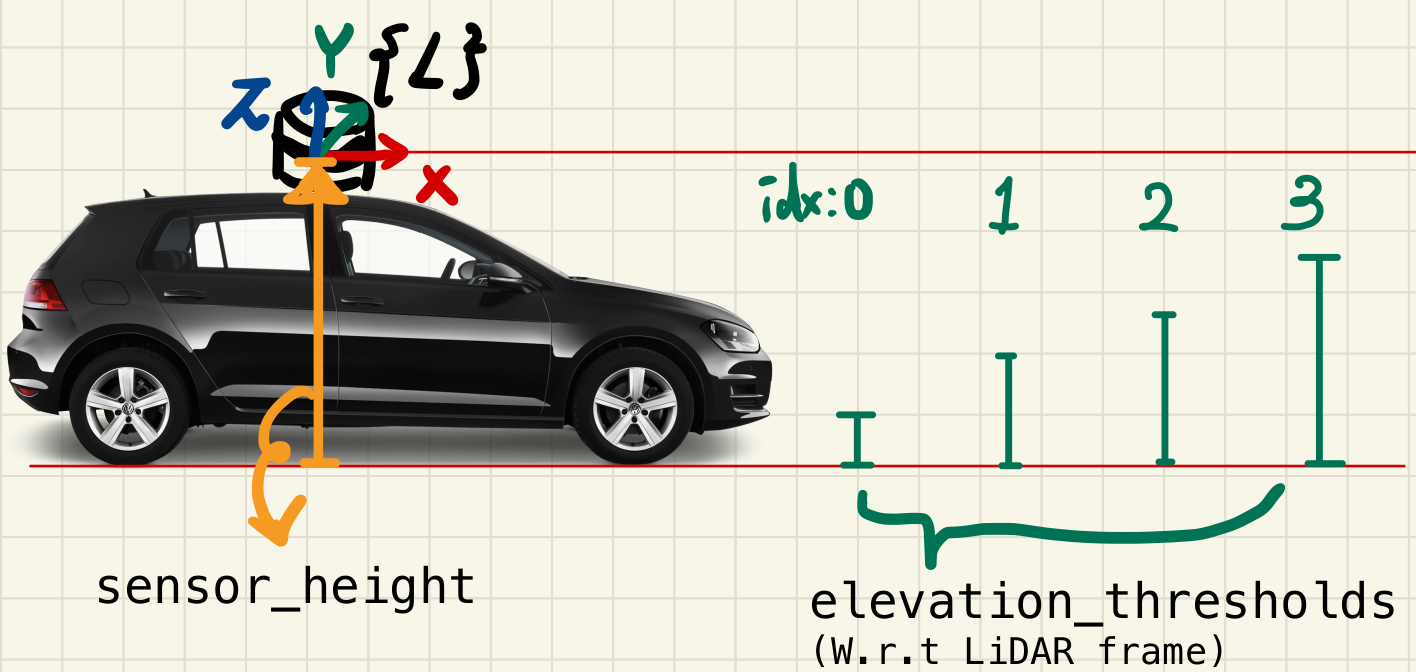 Y {L}
Z
X
idx:0 1 2 3
sensor_height
elevation_thresholds
(W.r.t LiDAR frame)